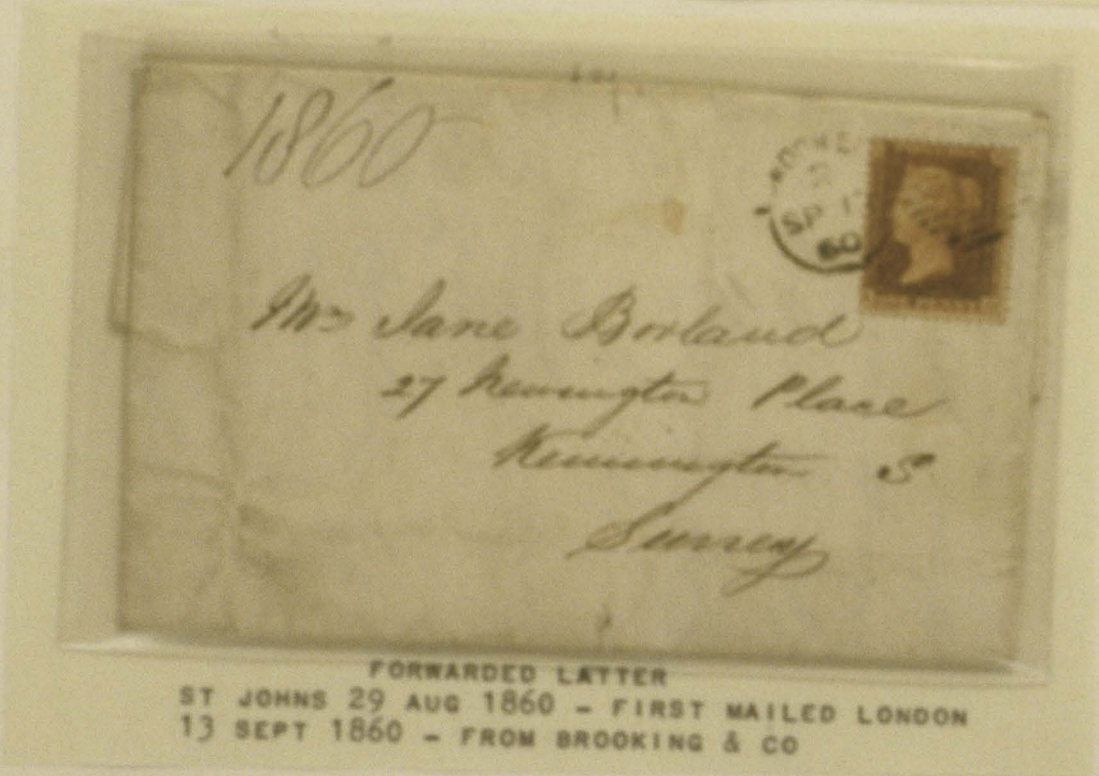 1860
SP 1
60
Mrs Jane Borland
27 Kennington Place
Kennington S
Surrey
ONE PENNY
FORWARDED LATTER
ST JOHNS 29 AUG 1860 – FIRST MAILED LONDON
13 SEPT 1860 – FROM BROOKING & CO